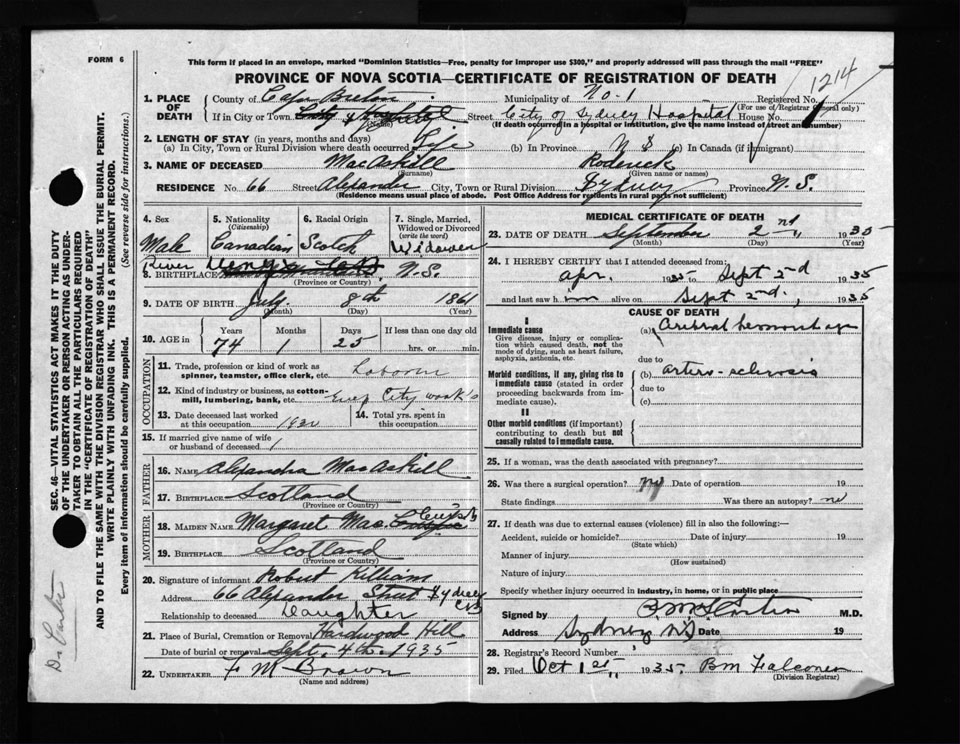 FORM 6
This form if placed in an envelope, marked "Dominion Statistics—Free, penalty for improper use $300," and properly addressed will pass through the mail "FREE"
PROVINCE OF NOVA SCOTIA—CERTIFICATE OF REGISTRATION OF DEATH
1214
1. PLACE OF DEATH County of Cape Breton Municipality of No. 1 Registered No.
(For use of Registrar General only)
If in City or Town Street City of Sydney Hospital House No. 1
(If death occurred in a hospital or institution, give the name instead of street and number)
2. LENGTH OF STAY (in years, months and days)
(a) In City, Town or Rural Division where death occurred Life (b) In Province N S (c) In Canada (if immigrant)
3. NAME OF DECEASED MacAskill Roderick
(Surname) (Given name or names)
RESIDENCE No. 66 Street Alexander City, Town or Rural Division Sydney Province N. S.
(Residence means usual place of abode. Post Office Address for residents in rural parts not sufficient)
4. Sex 5. Nationality (Citizenship) 6. Racial Origin 7. Single, Married, Widowed or Divorced (write the word)
Male Canadian Scotch Widower
River
8. BIRTHPLACE N.S.
(Province or Country)
9. DATE OF BIRTH July 8th 1861
(Month) (Day) (Year)
10. AGE in Years Months Days If less than one day old
74 1 25 hrs. or min.
OCCUPATION
11. Trade, profession or kind of work as spinner, teamster, office clerk, etc. Laborer
12. Kind of industry or business, as cotton-mill, lumbering, bank, etc. City work
13. Date deceased last worked at this occupation
14. Total yrs. spent in this occupation
15. If married give name of wife or husband of deceased
FATHER
16. NAME Alexandra MacAskill
17. BIRTHPLACE Scotland
(Province or Country)
MOTHER
18. MAIDEN NAME Margaret Mac
19. BIRTHPLACE Scotland
(Province or Country)
20. Signature of informant Robert Killiam
Address 66 Alexander Street Sydney C.B.
Relationship to deceased Daughter
21. Place of Burial, Cremation or Removal Hardwood Hill
Date of burial or removal Sept. 4th. 1935
22. UNDERTAKER F M Brown
(Name and address)
MEDICAL CERTIFICATE OF DEATH
23. DATE OF DEATH September 2nd, 1935
(Month) (Day) (Year)
24. I HEREBY CERTIFY that I attended deceased from:
Apr. 1935 to Sept 2nd 1935
and last saw him alive on Sept 2nd, 1935
CAUSE OF DEATH
I
Immediate cause
Give disease, injury or complication which caused death, not the mode of dying, such as heart failure, asphyxia, asthenia, etc.
(a) Cerebral
due to
Morbid conditions, if any, giving rise to immediate cause (stated in order proceeding backwards from immediate cause).
(b) arterio-sclerosis
due to
(c)
II
Other morbid conditions (if important) contributing to death but not causally related to immediate cause.
25. If a woman, was the death associated with pregnancy?
26. Was there a surgical operation? no Date of operation 19
State findings Was there an autopsy? no
27. If death was due to external causes (violence) fill in also the following:—
Accident, suicide or homicide? Date of injury 19
(State which)
Manner of injury
(How sustained)
Nature of injury
Specify whether injury occurred in industry, in home, or in public place
Signed by M.D.
Address Sydney N.S. Date 19
28. Registrar's Record Number
29. Filed Oct 1st 1935 BM Falconer
(Division Registrar)
SEC. 46—VITAL STATISTICS ACT MAKES IT THE DUTY
OF THE UNDERTAKER OR PERSON ACTING AS UNDER-
TAKER TO OBTAIN ALL THE PARTICULARS REQUIRED
IN THE "CERTIFICATE OF REGISTRATION OF DEATH"
AND TO FILE THE SAME WITH THE DIVISION REGISTRAR WHO SHALL ISSUE THE BURIAL PERMIT.
WRITE PLAINLY WITH UNFADING INK. THIS IS A PERMANENT RECORD.
Every item of information should be carefully supplied. (See reverse side for instructions.)